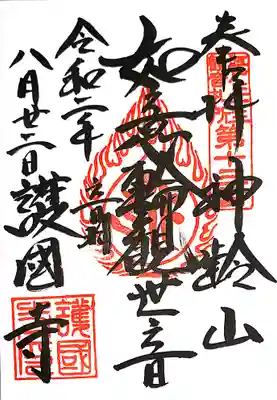 奉拝 神齢山
如意輪観世音
令和二年
八月廿二日 護國寺
護國